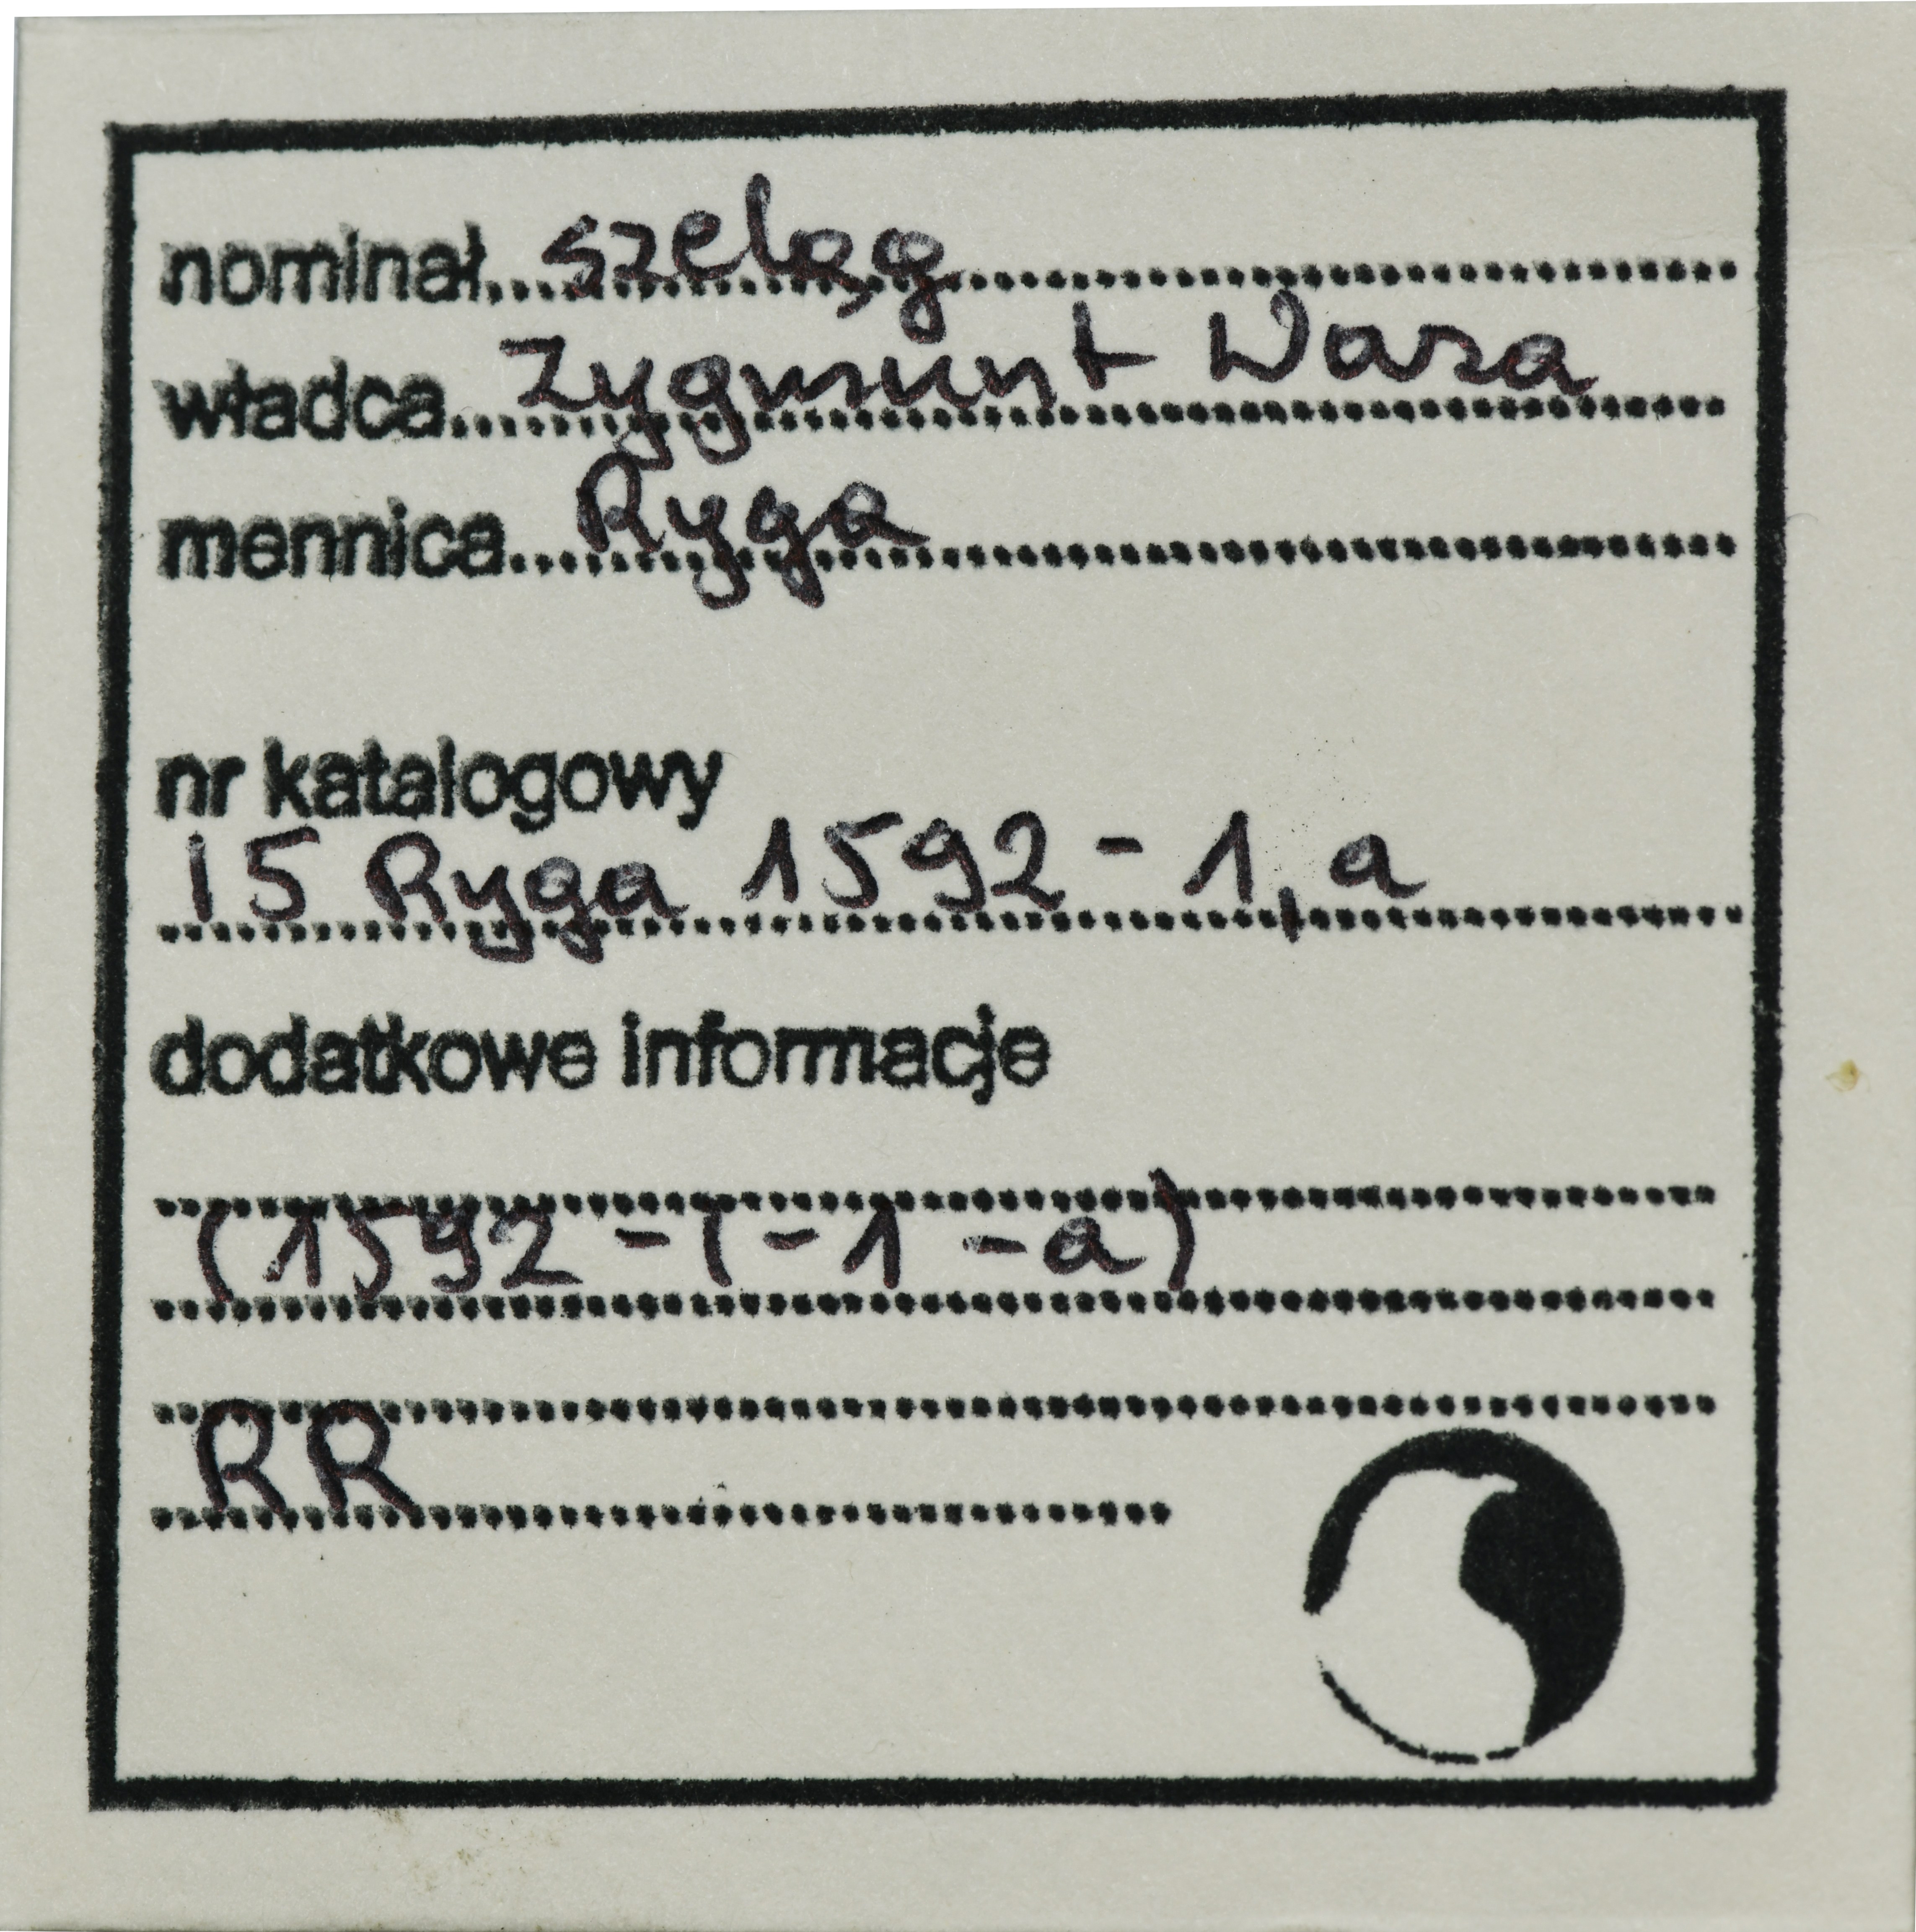 nominał szeląg
władca Zygmunt Waza
mennica Ryga
nr katalogowy
15 Ryga 1592 - 1, a
dodatkowe informacje
(1592 - ( - 1 - a)
RR